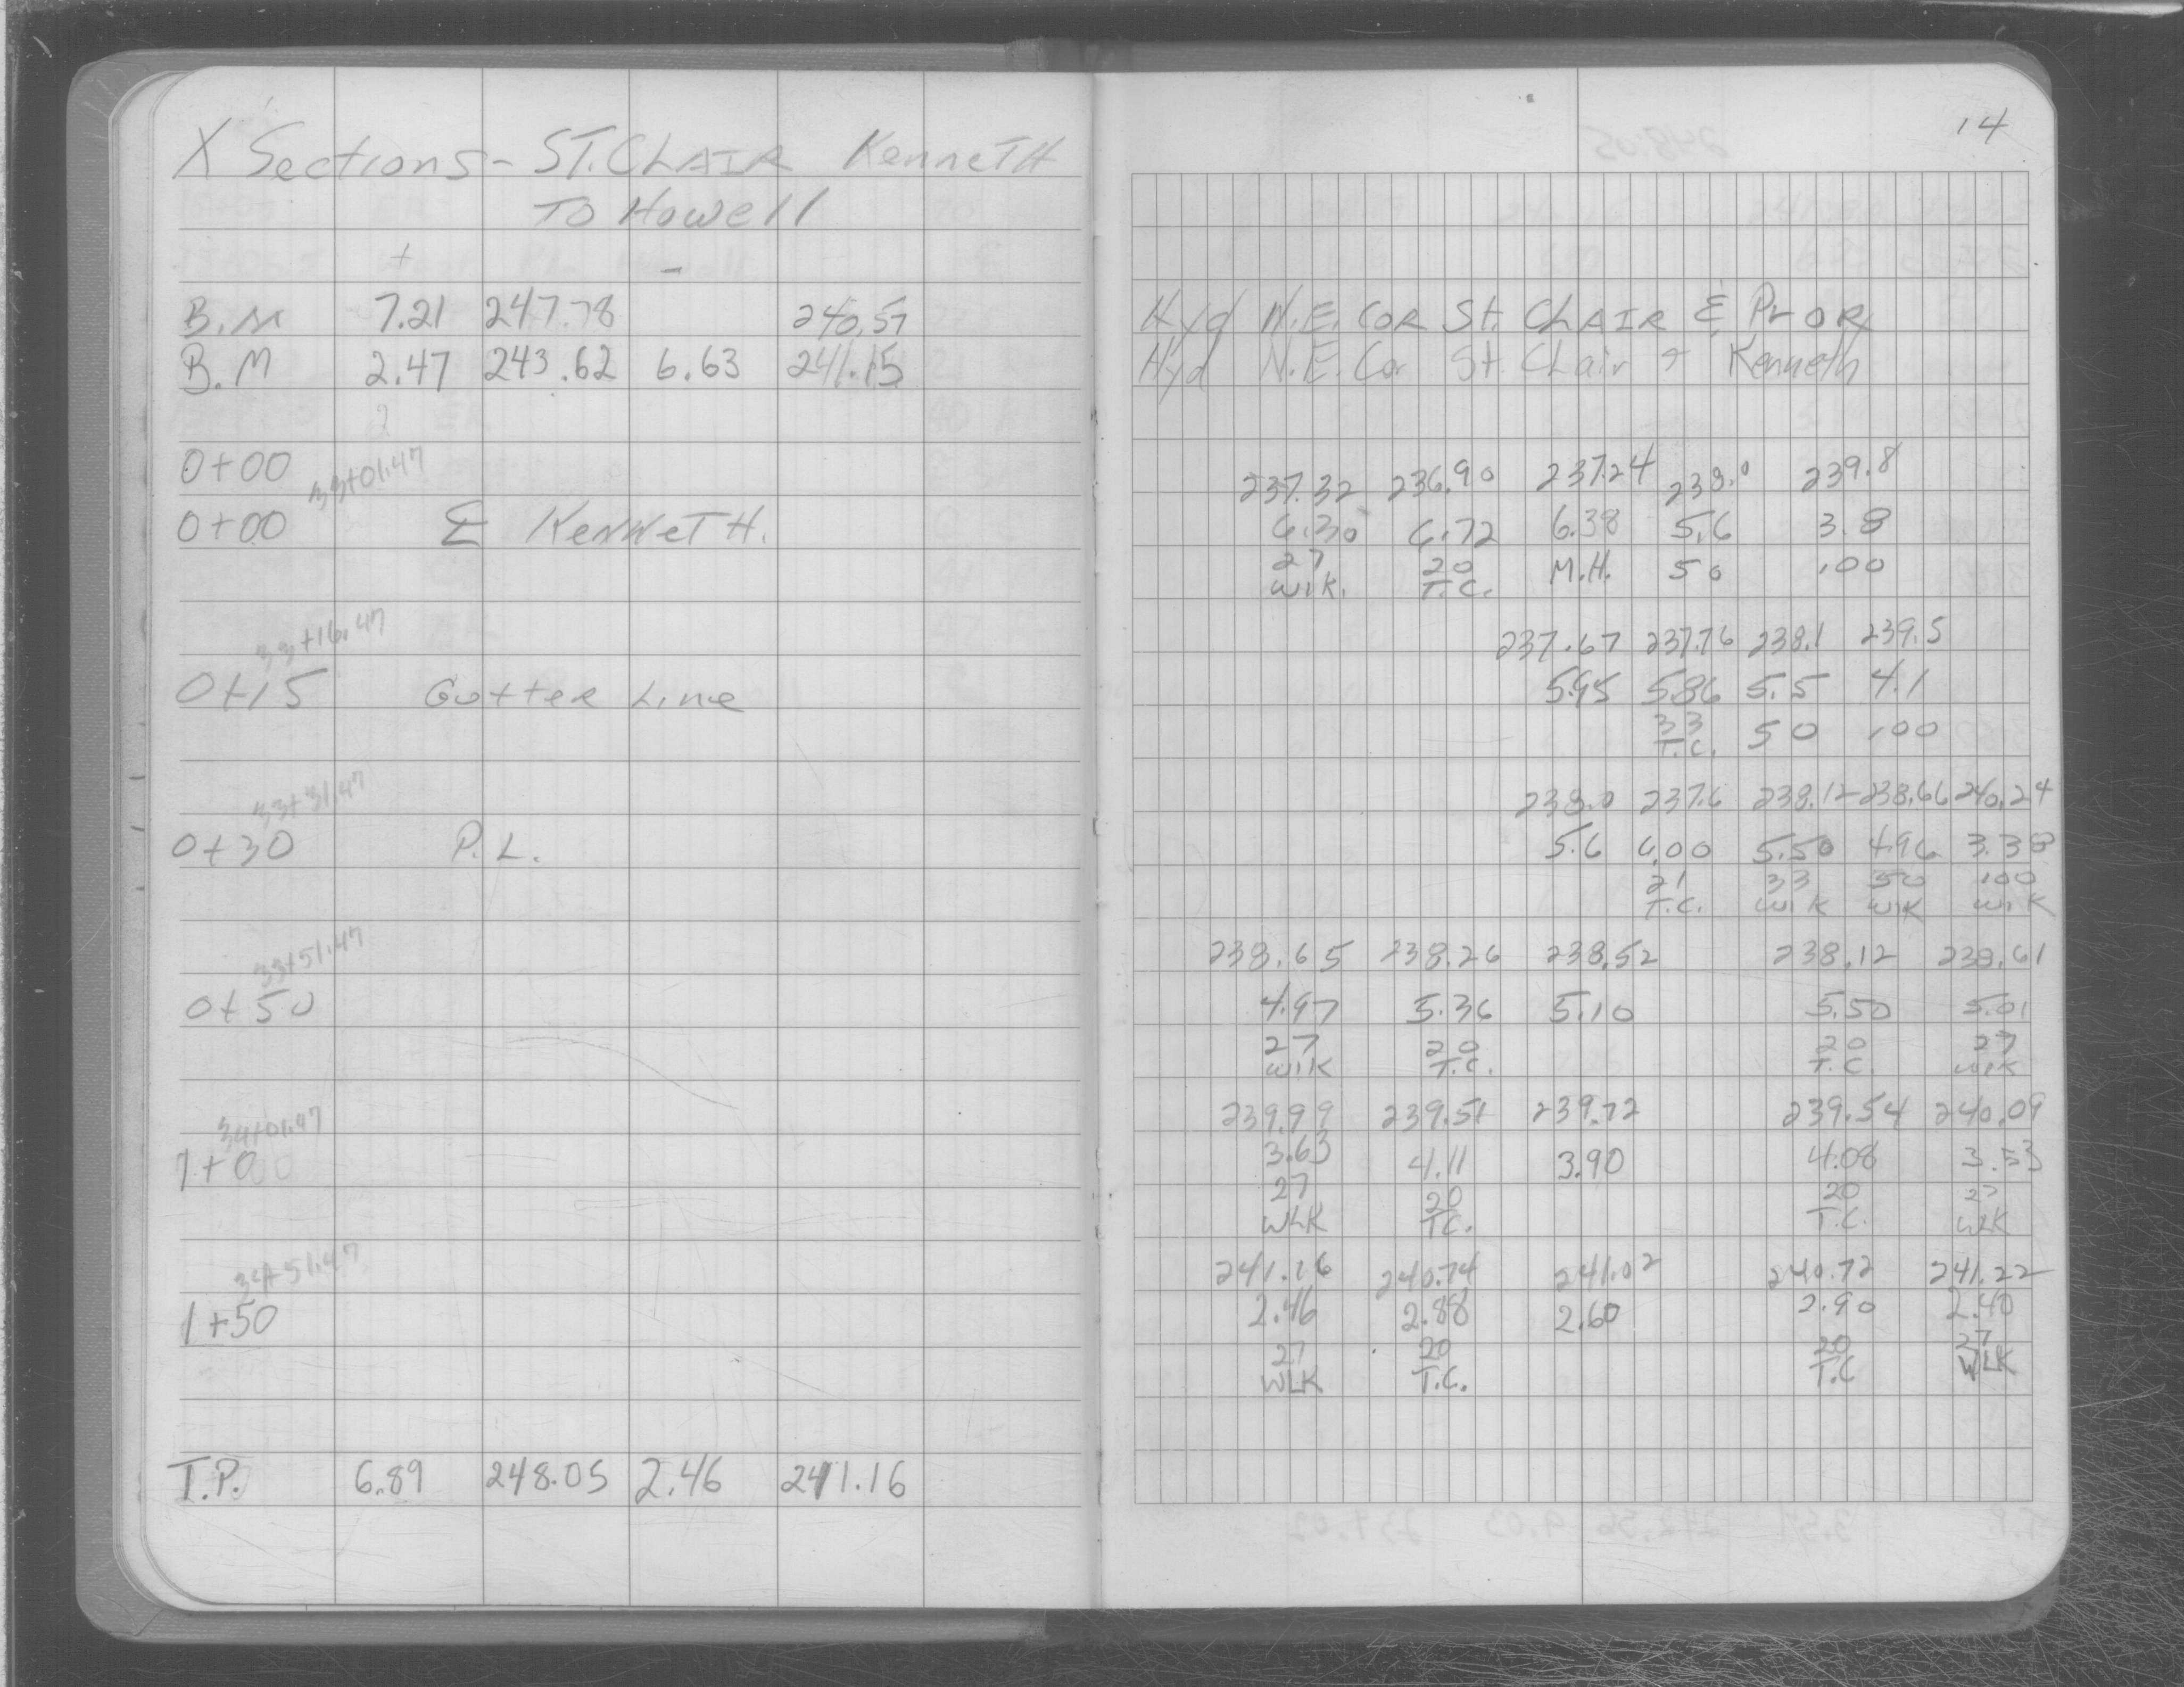 X Sections - ST. CLAIR KenneTH
TO Howell
+ -
B.M 7.21 247.78 240.57
B.M 2.47 243.62 6.63 241.15
0+00
33+01.47
0+00 KENNETH.
33+16.47
0+15 Gutter Line
33+31.47
0+30 P.L.
33+51.47
0+50
34+01.47
1+00
34+51.47
1+50
T.P. 6.89 248.05 2.46 241.16
14
Hyd N.E. COR St. CLAIR & PrIOR
Hyd N.E. Cor St. CLair + Kenneth
237.32 236.90 237.24 238.0 239.8
6.30 6.72 6.38 5.6 3.8
27 20 M.H. 50 100
WLK. T.C.
237.67 237.76 238.1 239.5
5.95 5.86 5.5 4.1
33 50 100
T.C.
238.0 237.6 238.12 238.66 240.24
5.6 6.00 5.50 4.96 3.38
21 33 50 100
T.C. WLK WLK WLK
238.65 238.26 238.52 238.12 238.61
4.97 5.36 5.10 5.50 5.01
27 20 20 27
WLK T.C. T.C. WLK
239.99 239.51 239.72 239.54 240.09
3.63 4.11 3.90 4.08 3.53
27 20 20 27
WLK T.C. T.C. WLK
241.16 240.74 241.02 240.72 241.22
2.46 2.88 2.60 2.90 2.40
27 20 20 27
WLK T.C. T.C WLK